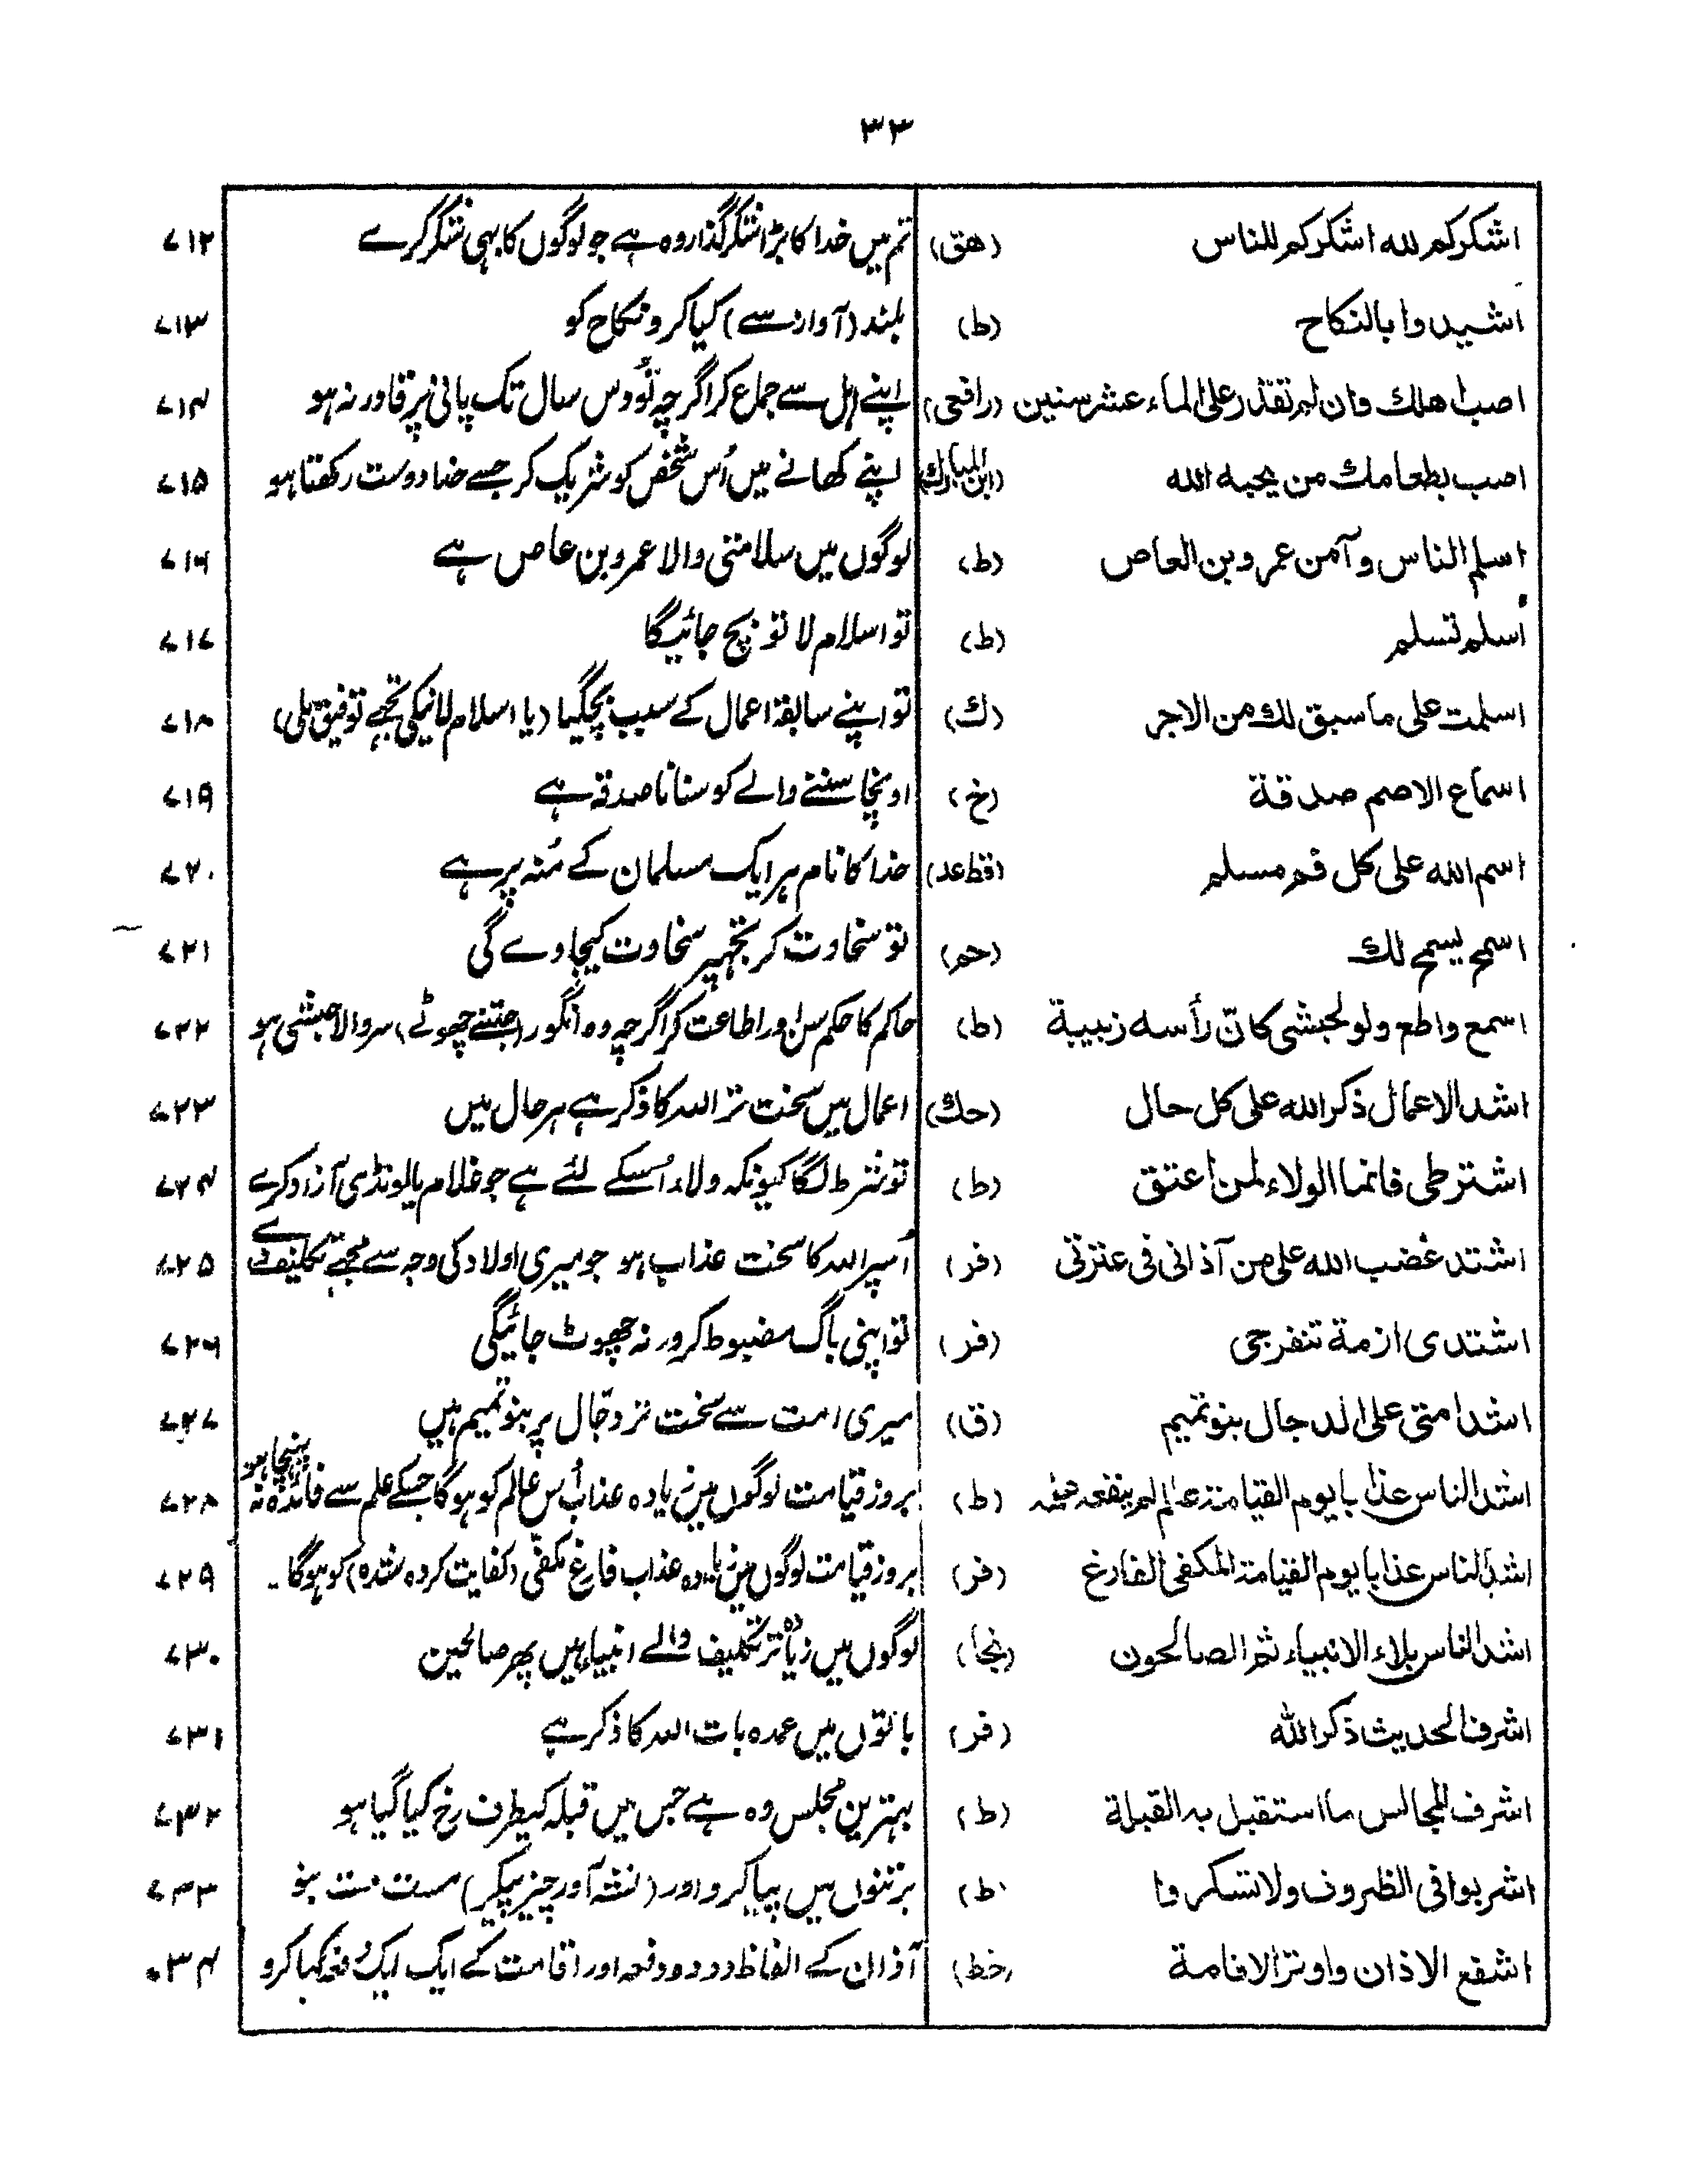 ۳۳
اشکرکم لله اشکرکم للناس (هق) تم میں خدا کا بڑا شکر گذار وہ ہے جو لوگوں کا بہی شکر کرے ۷۱۲
اشیدوا بالنکاح (ط) بلند (آواز سے) کیا کرو نکاح کو ۷۱۳
اصب اهلك وان لم تقدر علی الماء عشر سنین (رافعی) اپنے اہل سے جماع کر اگرچہ تو دس سال تک پانی پر قادر نہ ہو ۷۱۴
اصب بطعامك من یحبه الله (ابن المبارك) اپنے کھانے میں اُس شخص کو شریک کر جسے خدا دوست رکھتا ہو ۷۱۵
اسلم الناس وآمن عمرو بن العاص (ط) لوگوں میں سلامتی والا عمرو بن عاص ہے ۷۱۶
أسلم تسلم (ط) تو اسلام لا تو بچ جائیگا ۷۱۷
اسلمت علی ماسبق لك من الاجر (ك) تو اپنے سابقہ اعمال کے سبب بچگیا (یا اسلام لانیکی تجھے توفیق ملی) ۷۱۸
اسماع الاصم صدقة (خ) اونچا سننے والے کو سنانا صدقہ ہے ۷۱۹
اسم الله علی کل فم مسلم (قط عد) خدا کا نام ہر ایک مسلمان کے مُنہ پر ہے ۷۲۰
اسمح یسمح لك (حم) تو سخاوت کر تجہپر سخاوت کیجاوے گی ۷۲۱
اسمع واطع ولو لحبشی کانّ رأسه زبیبة (ط) حاکم کا حکم سن اور اطاعت کر اگرچہ وہ انگور (جتنے چھوٹے) سر والا حبشی ہو ۷۲۲
اشد الاعمال ذکر الله علی کل حال (حك) اعمال میں سخت تر اللہ کا ذکر ہے ہر حال میں ۷۲۳
اشترطی فانما الولاء لمن اعتق (ط) تو شرط لگا کیونکہ ولاء اُسکے لئے ہے جو غلام یا لونڈی آزاد کرے ۷۲۴
اشتد غضب الله علی من آذانی فی عترتی (فر) اُسپر اللہ کا سخت عذاب ہو جو میری اولاد کی وجہ سے مجہے تکلیف دے ۷۲۵
اشتدی ازمة تنفرجی (فر) تو اپنی باگ مضبوط کر ورنہ چھوٹ جائیگی ۷۲۶
اشد امتی علی الدجال بنو تمیم (ق) میری امت سے سخت تر دجّال پر بنو تمیم ہیں ۷۲۷
اشد الناس عذابا یوم القیامة عالم لم ینفعه علمه (ط) بروز قیامت لوگوں میں زیادہ عذاب اُس عالم کو ہوگا جسکے علم سے فائدہ نہ پہنچا ہو ۷۲۸
اشد الناس عذابا یوم القیامة المکفی الفارغ (فر) بروز قیامت لوگوں میں زیادہ عذاب فارغ مکفی (کفایت کردہ شدہ) کو ہوگا۔ ۷۲۹
اشد الناس بلاء الانبیاء ثم الصالحون (نجا) لوگوں میں زیادہ تر تکلیف والے انبیاء ہیں پھر صالحین ۷۳۰
اشرف الحدیث ذکر الله (فر) باتوں میں عمدہ بات اللہ کا ذکر ہے ۷۳۱
اشرف المجالس ما استقبل به القبلة (ط) بہترین مجلس وہ ہے جس میں قبلہ کیطرف رخ کیا گیا ہو ۷۳۲
اشربوا فی الظروف ولا تسکروا (ط) برتنوں میں پیا کرو اور (نشہ آور چیز پیکر) مست مت بنو ۷۳۳
اشفع الاذان واوتر الاقامة (خط) آذان کے الفاظ دو دو دفعہ اور اقامت کے ایک ایک دفعہ کہا کرو ۷۳۴